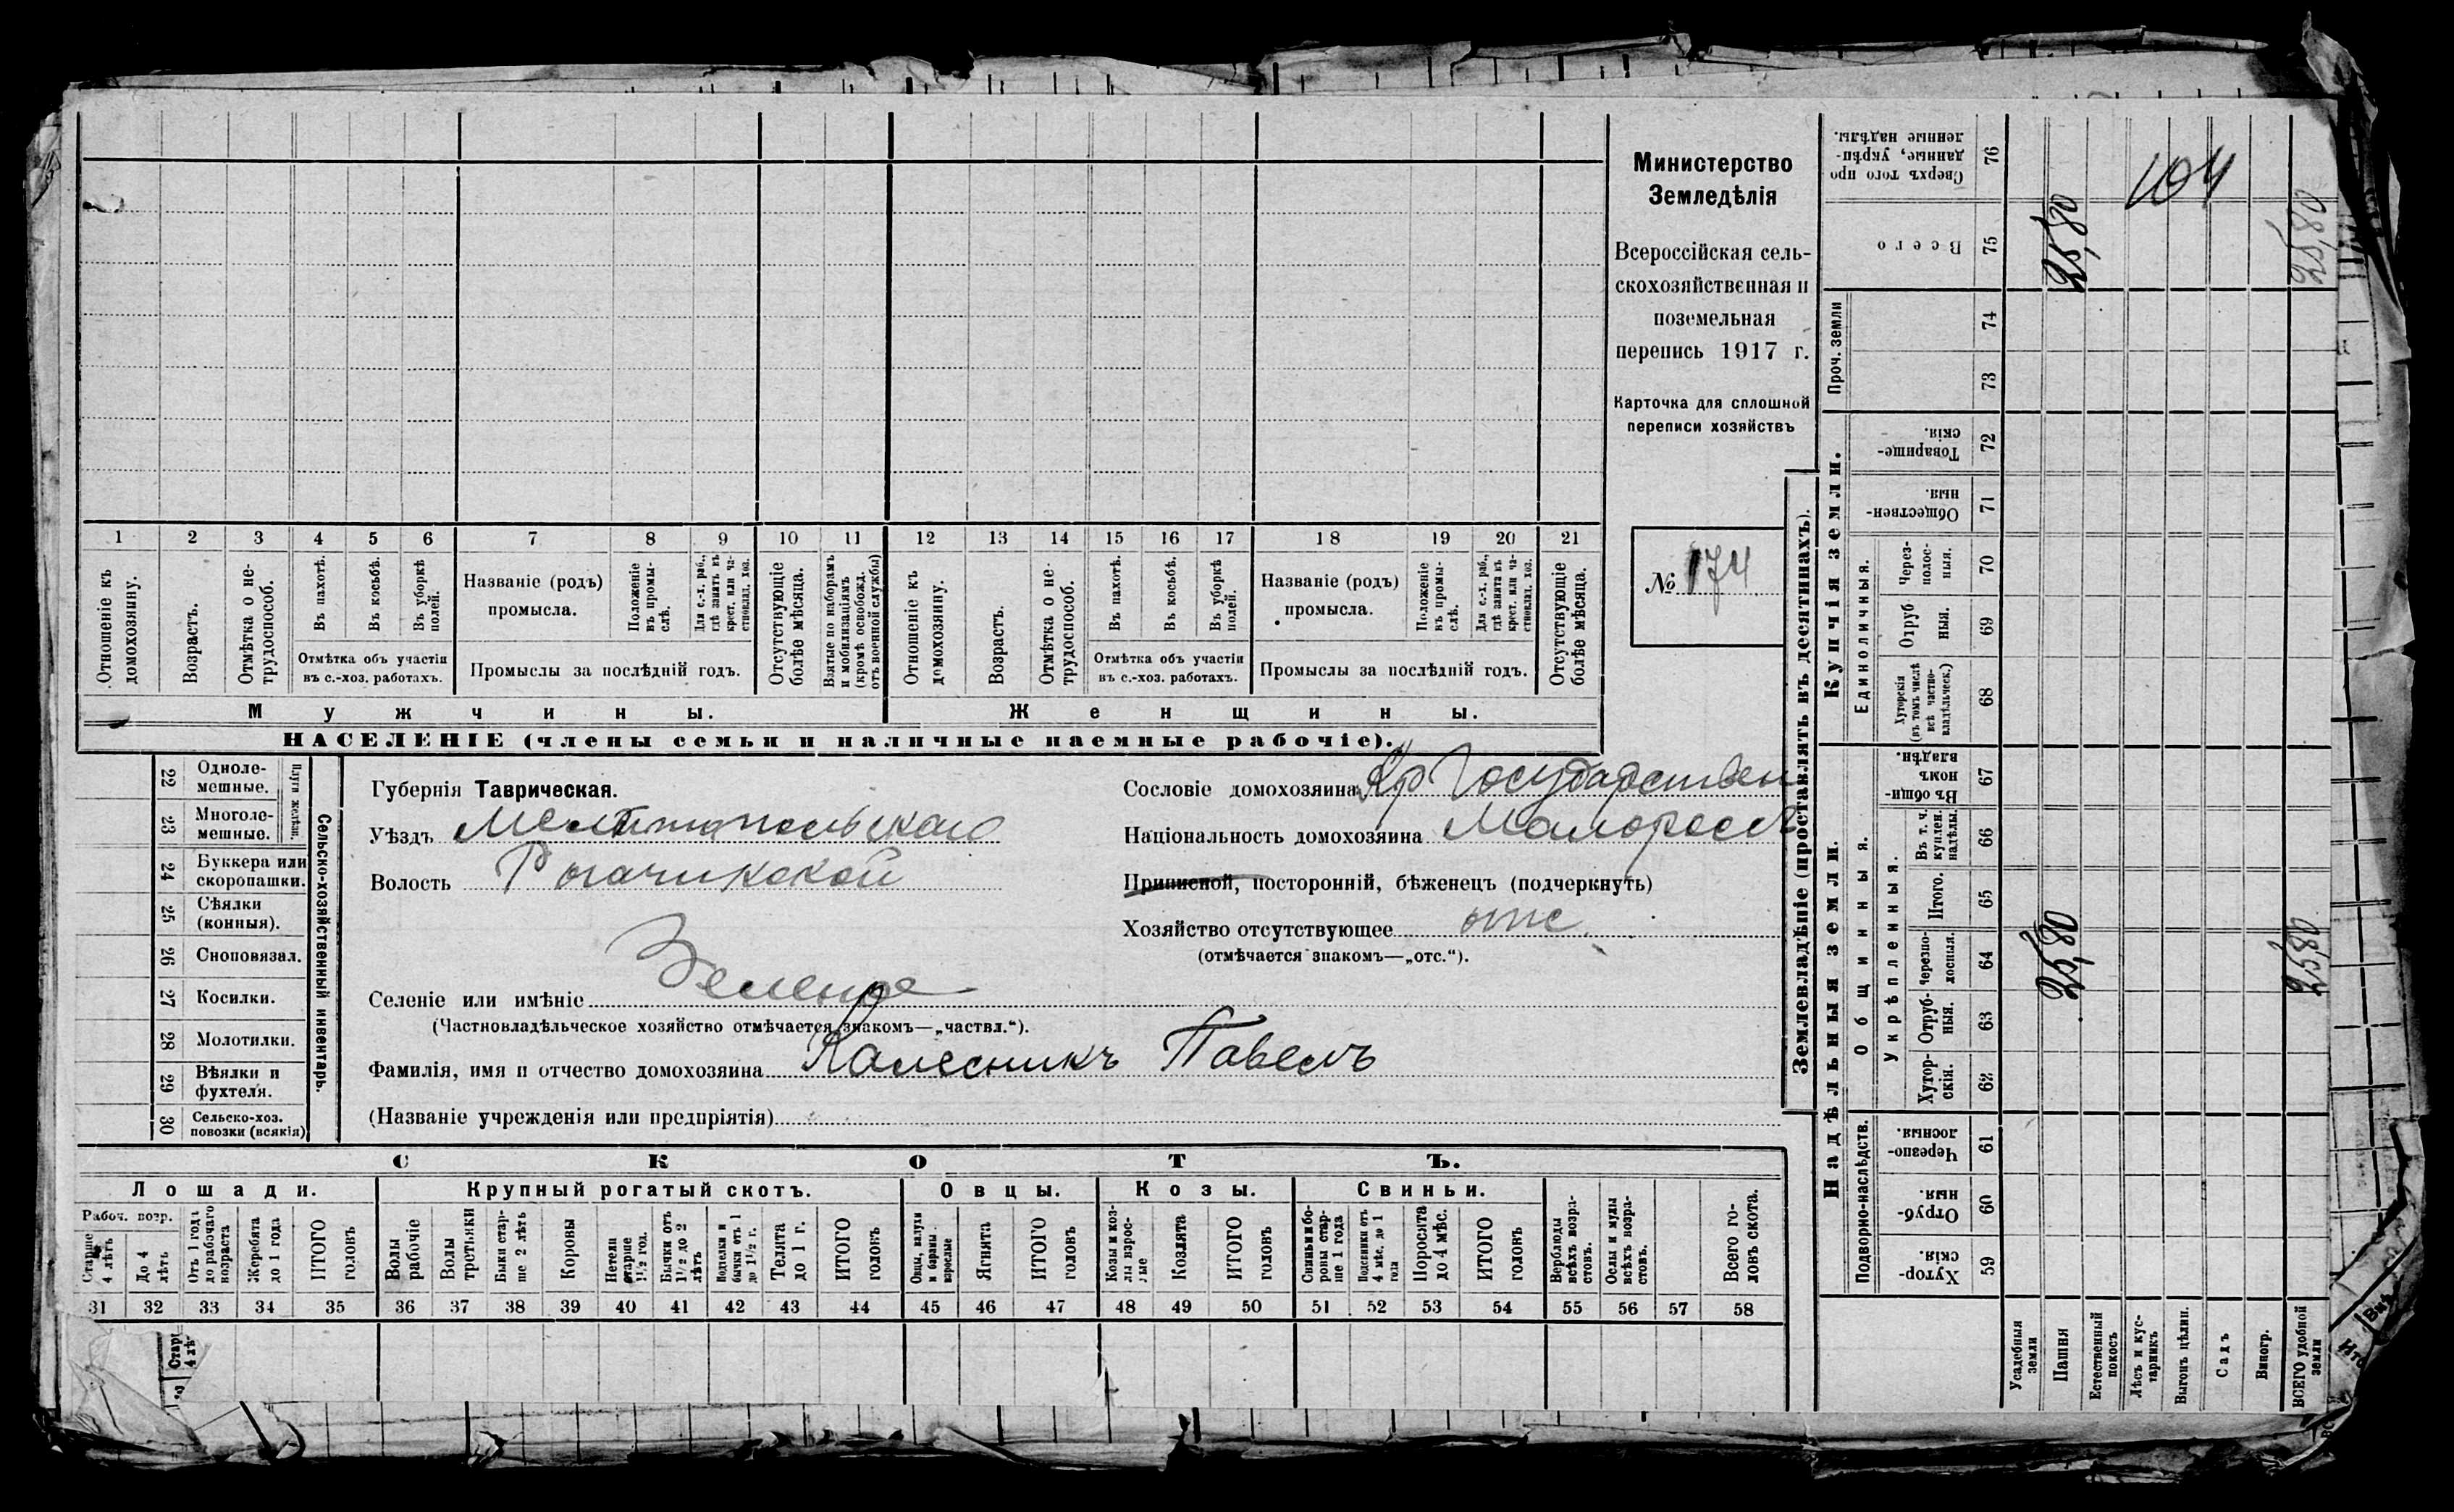 Министерство
Земледѣлія
Всероссійская сель-
скохозяйственная и
поземельная
перепись 1917 г.
Карточка для сплошной
переписи хозяйствъ
№ 174
1 2 3 4 5 6 7 8 9 10 11 12 13 14 15 16 17 18 19 20 21
Отношеніе къ домохозяину.
Возрастъ.
Отмѣтка о не-трудоспособ.
Въ пахотѣ.
Въ косьбѣ.
Въ уборкѣ полей.
Отмѣтка объ участіи
въ с.-хоз. работахъ.
Названіе (родъ)
промысла.
Положеніе въ промы-слѣ.
Для с.-х. раб., гдѣ занятъ въ крест. или ча-стновлад. хоз.
Промыслы за послѣдній годъ.
Отсутствующіе болѣе мѣсяца.
Взятые по наборамъ и мобилизаціямъ (кромѣ освобожд. отъ военной службы)
Отношеніе къ домохозяину.
Возрастъ.
Отмѣтка о не-трудоспособ.
Въ пахотѣ.
Въ косьбѣ.
Въ уборкѣ полей.
Отмѣтка объ участіи
въ с.-хоз. работахъ.
Названіе (родъ)
промысла.
Положеніе въ промы-слѣ.
Для с.-х. раб., гдѣ занята въ крест. или ча-стновлад. хоз.
Промыслы за послѣдній годъ.
Отсутствующіе болѣе мѣсяца.
Мужчины.
Женщины.
НАСЕЛЕНІЕ (члены семьи и наличные наемные рабочіе).
Сельско-хозяйственный инвентарь.
Плуги желѣзн.
22 Одноле-мешные.
23 Многоле-мешные.
24 Буккера или скоропашки.
25 Сѣялки (конныя).
26 Сноповязал.
27 Косилки.
28 Молотилки.
29 Вѣялки и фухтеля.
30 Сельско-хоз. повозки (всякія)
Губернія Таврическая.
Уѣздъ Мелитопольскаго
Волость Рогачикской
Селеніе или имѣніе Зеленое
(Частновладѣльческое хозяйство отмѣчается знакомъ—„частвл.“).
Фамилія, имя и отчество домохозяина Калесникъ Павелъ
(Названіе учрежденія или предпріятія)
Сословіе домохозяина Кр Государствен
Національность домохозяина Малороссъ
Приписной, посторонній, бѣженецъ (подчеркнуть)
Хозяйство отсутствующее отс.
(отмѣчается знакомъ—„отс.“).
СКОТЪ.
Лошади.
Рабоч. возр.
Старше 4 лѣтъ
До 4 лѣтъ
Отъ 1 года до рабочаго возраста
Жеребята до 1 года
ИТОГО головъ
Крупный рогатый скотъ.
Волы рабочіе
Волы третьяки
Быки стар-ше 2 лѣтъ
Коровы
Нетели старше 1½ год.
Бычки отъ 1½ до 2 лѣтъ
Подтелки и бычки отъ 1 до 1½ г.
Телята до 1 г.
ИТОГО головъ
Овцы.
Овцы, валухи и бараны взрослые
Ягнята
ИТОГО головъ
Козы.
Козы и коз-лы взрос-лые
Козлята
ИТОГО головъ
Свиньи.
Свиньи и бо-ровы стар-ше 1 года
Подсвинки отъ 4 мѣс. до 1 года
Поросята до 4 мѣс.
ИТОГО головъ
Верблюды всѣхъ возра-стовъ.
Ослы и мулы всѣхъ возра-стовъ.
Всего го-ловъ скота.
31 32 33 34 35 36 37 38 39 40 41 42 43 44 45 46 47 48 49 50 51 52 53 54 55 56 57 58
Землевладѣніе (проставлять въ десятинахъ).
Надѣльныя земли.
Подворно-наслѣдств.
59 Хутор-скія.
60 Отруб-ныя.
61 Черезпо-лосныя.
Общинныя.
Укрѣпленныя.
62 Хутор-скія.
63 Отруб-ныя.
64 Черезпо-лосныя.
65 Итого.
66 Въ т. ч. куплен. надѣлы.
67 Въ общи-номъ владѣн.
Купчія земли.
Единоличныя.
68 Хуторскія (въ томъ числѣ всѣ частно-владѣльческ.)
69 Отруб ныя.
70 Через-полос-ныя.
71 Обществен-ныя.
72 Товарище-скія.
Проч. земли
73
74
75 Всего
76 Сверхъ того про данные, укрѣп-ленные надѣлы.
Усадебныя земли
Пашня
Естественный покосъ
Лѣсъ и кус-тарникъ
Выгонъ цѣлин.
Садъ
Виногр.
ВСЕГО удобной земли
25,80
25,80
25,80
25,80
104